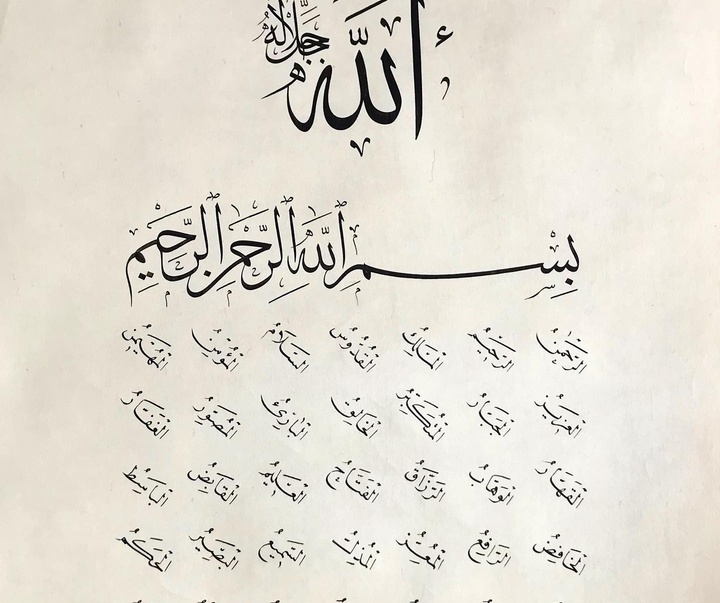 ٱللَّه جَلَّ جَلَالُهُ
بِسْمِ ٱللَّهِ ٱلرَّحْمٰنِ ٱلرَّحِيمِ
ٱلرَّحْمٰنُ ٱلرَّحِيمُ ٱلْمَلِكُ ٱلْقُدُّوسُ ٱلسَّلَامُ ٱلْمُؤْمِنُ ٱلْمُهَيْمِنُ
ٱلْعَزِيزُ ٱلْجَبَّارُ ٱلْمُتَكَبِّرُ ٱلْخَالِقُ ٱلْبَارِئُ ٱلْمُصَوِّرُ ٱلْغَفَّارُ
ٱلْقَهَّارُ ٱلْوَهَّابُ ٱلرَّزَّاقُ ٱلْفَتَّاحُ ٱلْعَلِيمُ ٱلْقَابِضُ ٱلْبَاسِطُ
ٱلْخَافِضُ ٱلرَّافِعُ ٱلْمُعِزُّ ٱلْمُذِلُّ ٱلسَّمِيعُ ٱلْبَصِيرُ ٱلْحَكَمُ